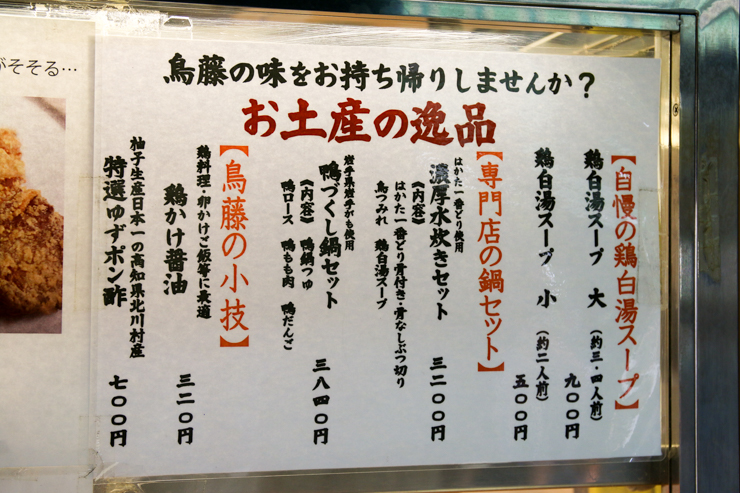 がそそる…
鳥藤の味をお持ち帰りしませんか？
お土産の逸品
【自慢の鶏白湯スープ】
鶏白湯スープ 大 （約三・四人前） 九〇〇円
鶏白湯スープ 小 （約二人前） 五〇〇円
【専門店の鍋セット】
はかた一番どり使用
濃厚水炊きセット 三二〇〇円
《内容》
はかた一番どり骨付き・骨なしぶつ切り
鳥つみれ 鶏白湯スープ
岩手県岩手がも使用
鴨づくし鍋セット 三八四〇円
《内容》 鴨鍋つゆ
鴨ロース 鴨もも肉 鴨だんご
【鳥藤の小技】
鶏料理・卵かけご飯等に最適
鶏かけ醤油 三二〇円
柚子生産日本一の高知県北川村産
特選ゆずポン酢 七〇〇円